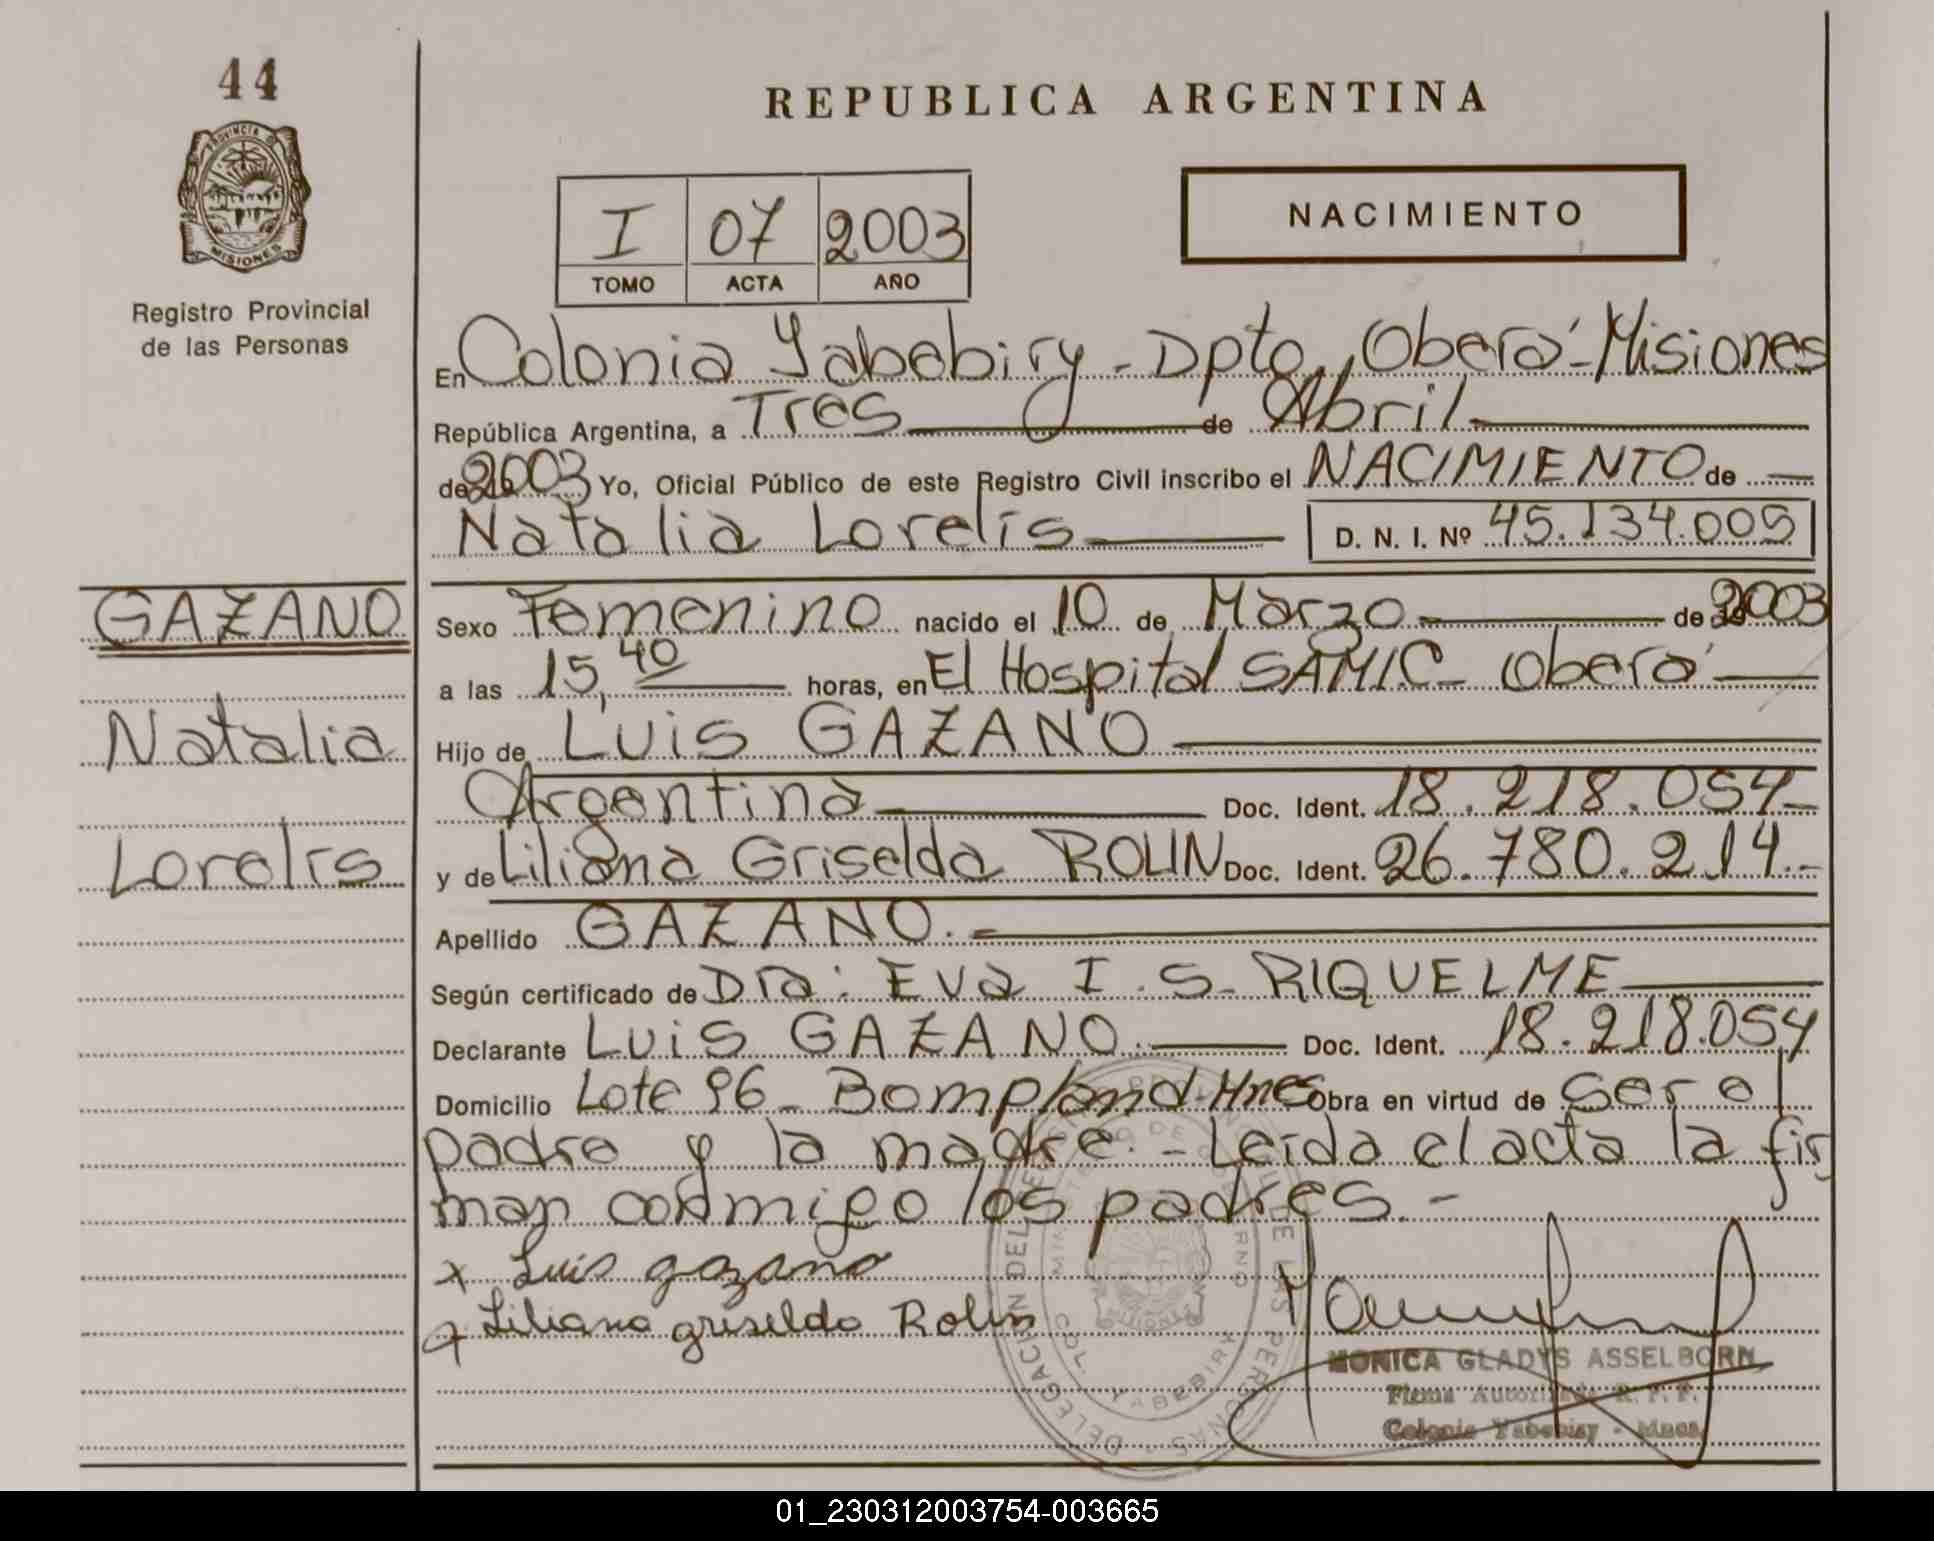 44
PROVINCIA DE
MISIONES
Registro Provincial
de las Personas
REPUBLICA ARGENTINA
I 07 2003
TOMO ACTA AÑO
NACIMIENTO
En Colonia Yabebiry - Dpto. Oberá - Misiones
República Argentina, a Tres de Abril
de 2003 Yo, Oficial Público de este Registro Civil inscribo el NACIMIENTO de
Natalia Lorelis D. N. I. Nº 45.134.005
GAZANO
Natalia
Lorelis
Sexo Femenino nacido el 10 de Marzo de 2003
a las 15,40 horas, en El Hospital SAMIC - Oberá
Hijo de Luis GAZANO
Argentina Doc. Ident. 18.218.054-
y de Liliana Griselda ROLIN Doc. Ident. 26.780.214.-
Apellido GAZANO.-
Según certificado de Dra: Eva I. S. RIQUELME
Declarante Luis GAZANO. Doc. Ident. 18.218.054
Domicilio Lote 96 - Bompland - Mnes Obra en virtud de ser el
padre y la madre.- Leida el acta la fir
man conmigo los padres.-
x Luis gazano
x Liliana griselda Rolin
MONICA GLADYS ASSELBORN
Firma Autorizada R. P. P.
Colonia Yabebiry - Mnes.
DELEGACION DEL REGISTRO PROVINCIAL DE LAS PERSONAS
MINISTERIO DE GOBIERNO
COL. YABEBIRY
MISIONES
01_230312003754-003665